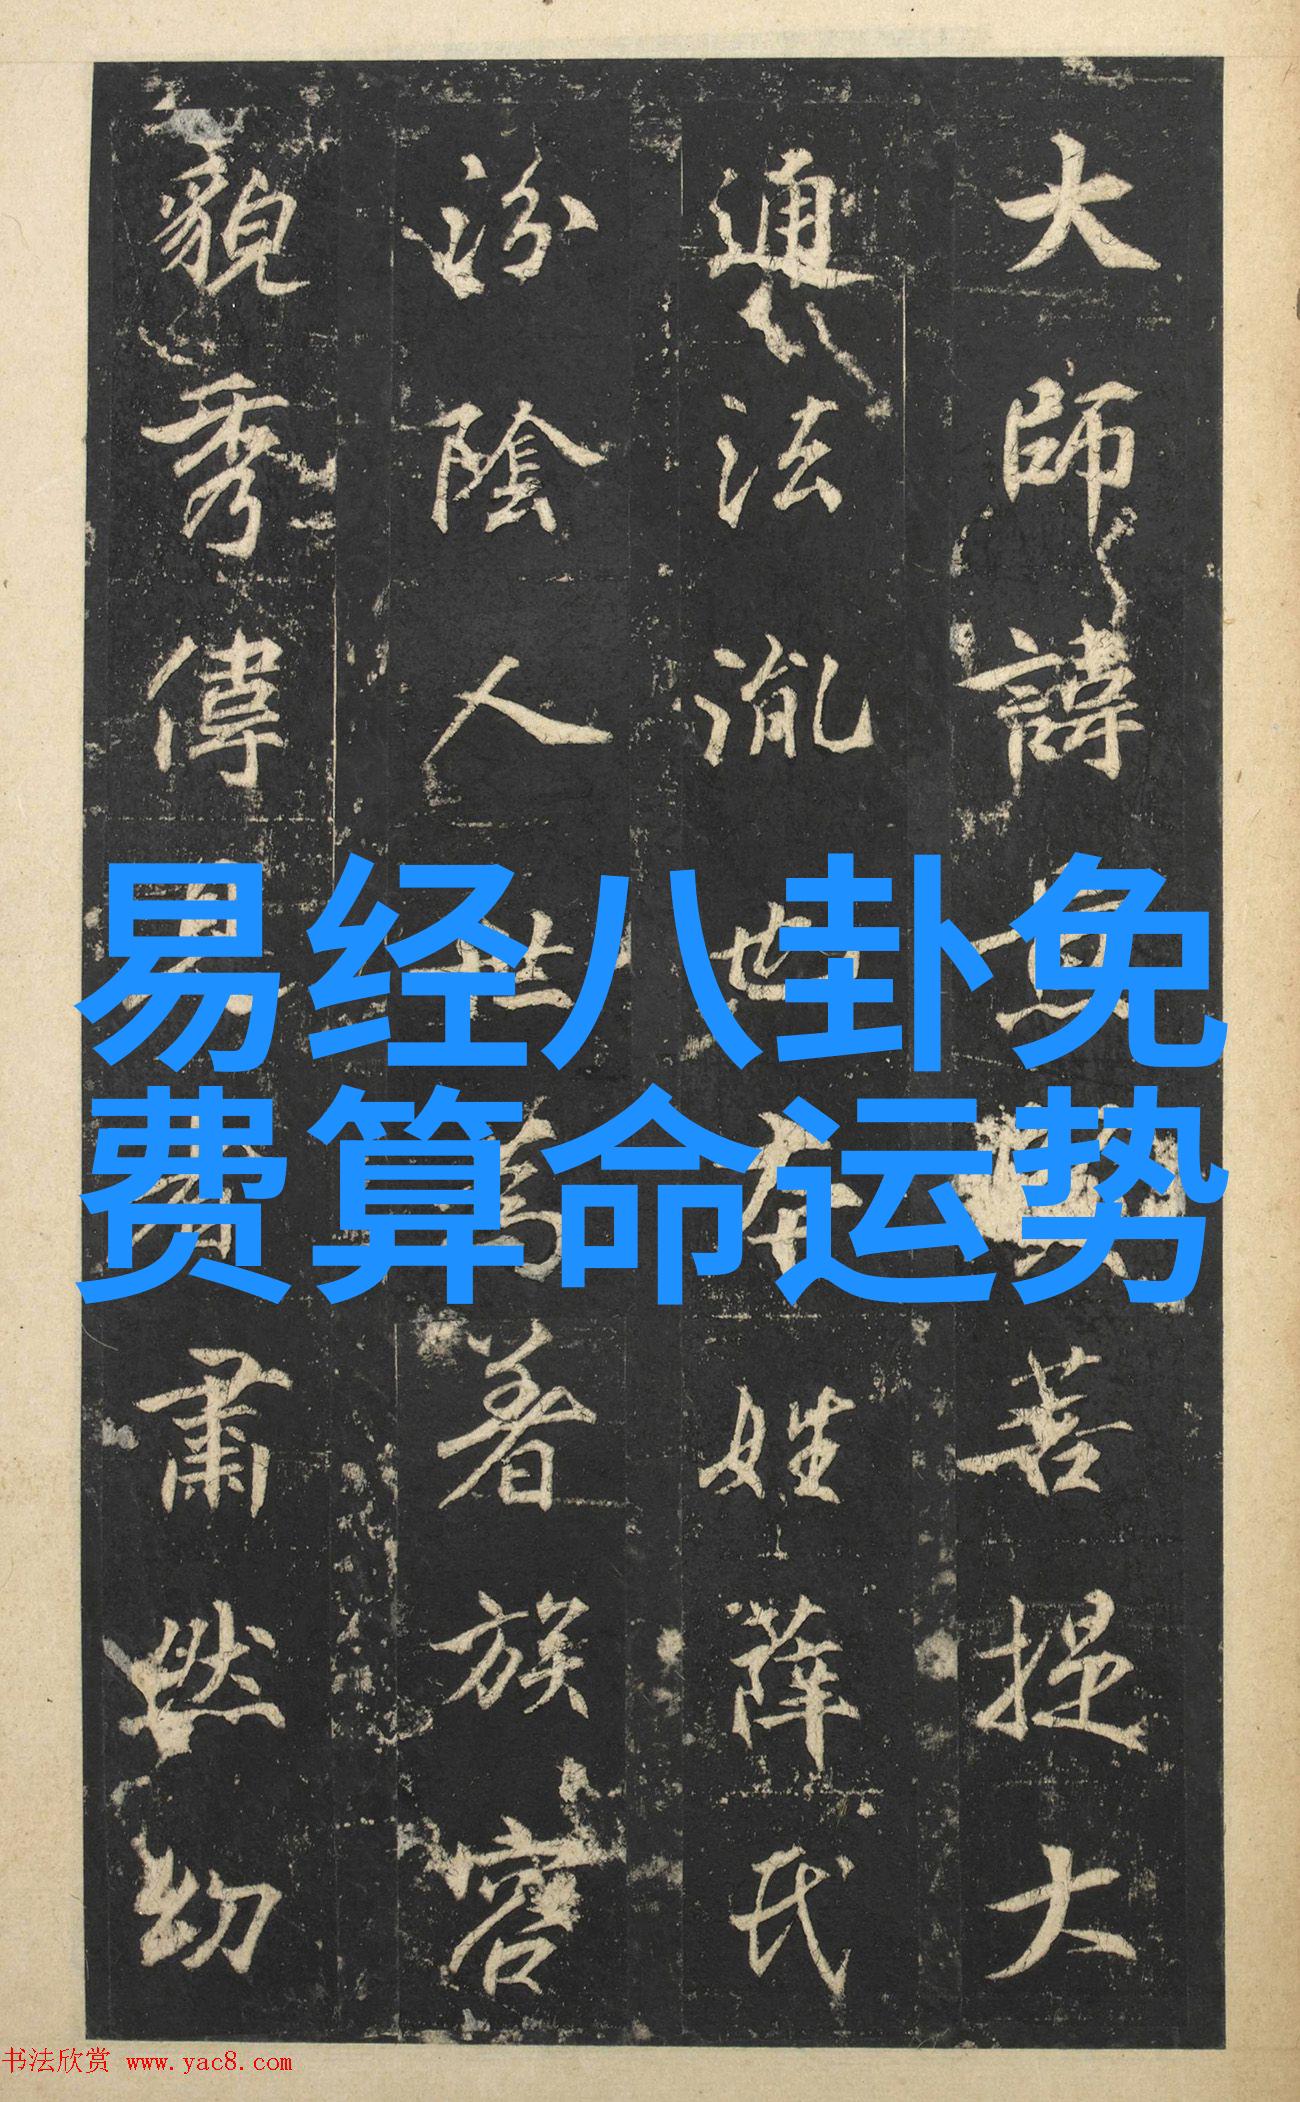 易经八卦免
费算命运势
大師諱菩提大
通法世本姓薛氏
汾陰人著族容
貌秀偉肅然幼
书法欣赏 www.yac8.com